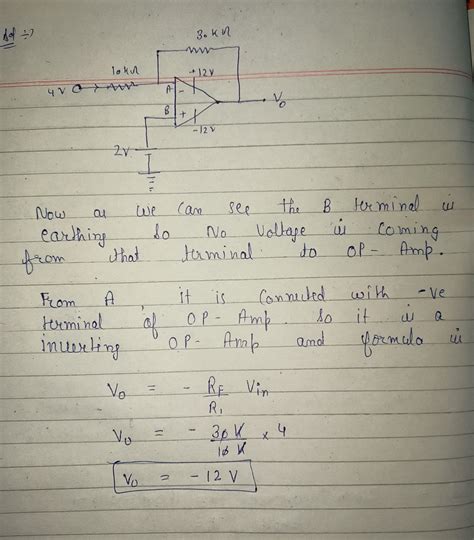 Sol ÷)
30KΩ
10KΩ
+12V
4V
A -
V₀
B +
-12V
2V
Now as we can see the B terminal is
earthing So No Voltage is Coming
from that terminal to OP-Amp.
From A, it is Connected with -ve
terminal of OP-Amp. So it is a
inverting OP-Amp and formula is
V₀ = - RF/R₁ Vin
V₀ = - 30K/10K × 4
V₀ = -12V